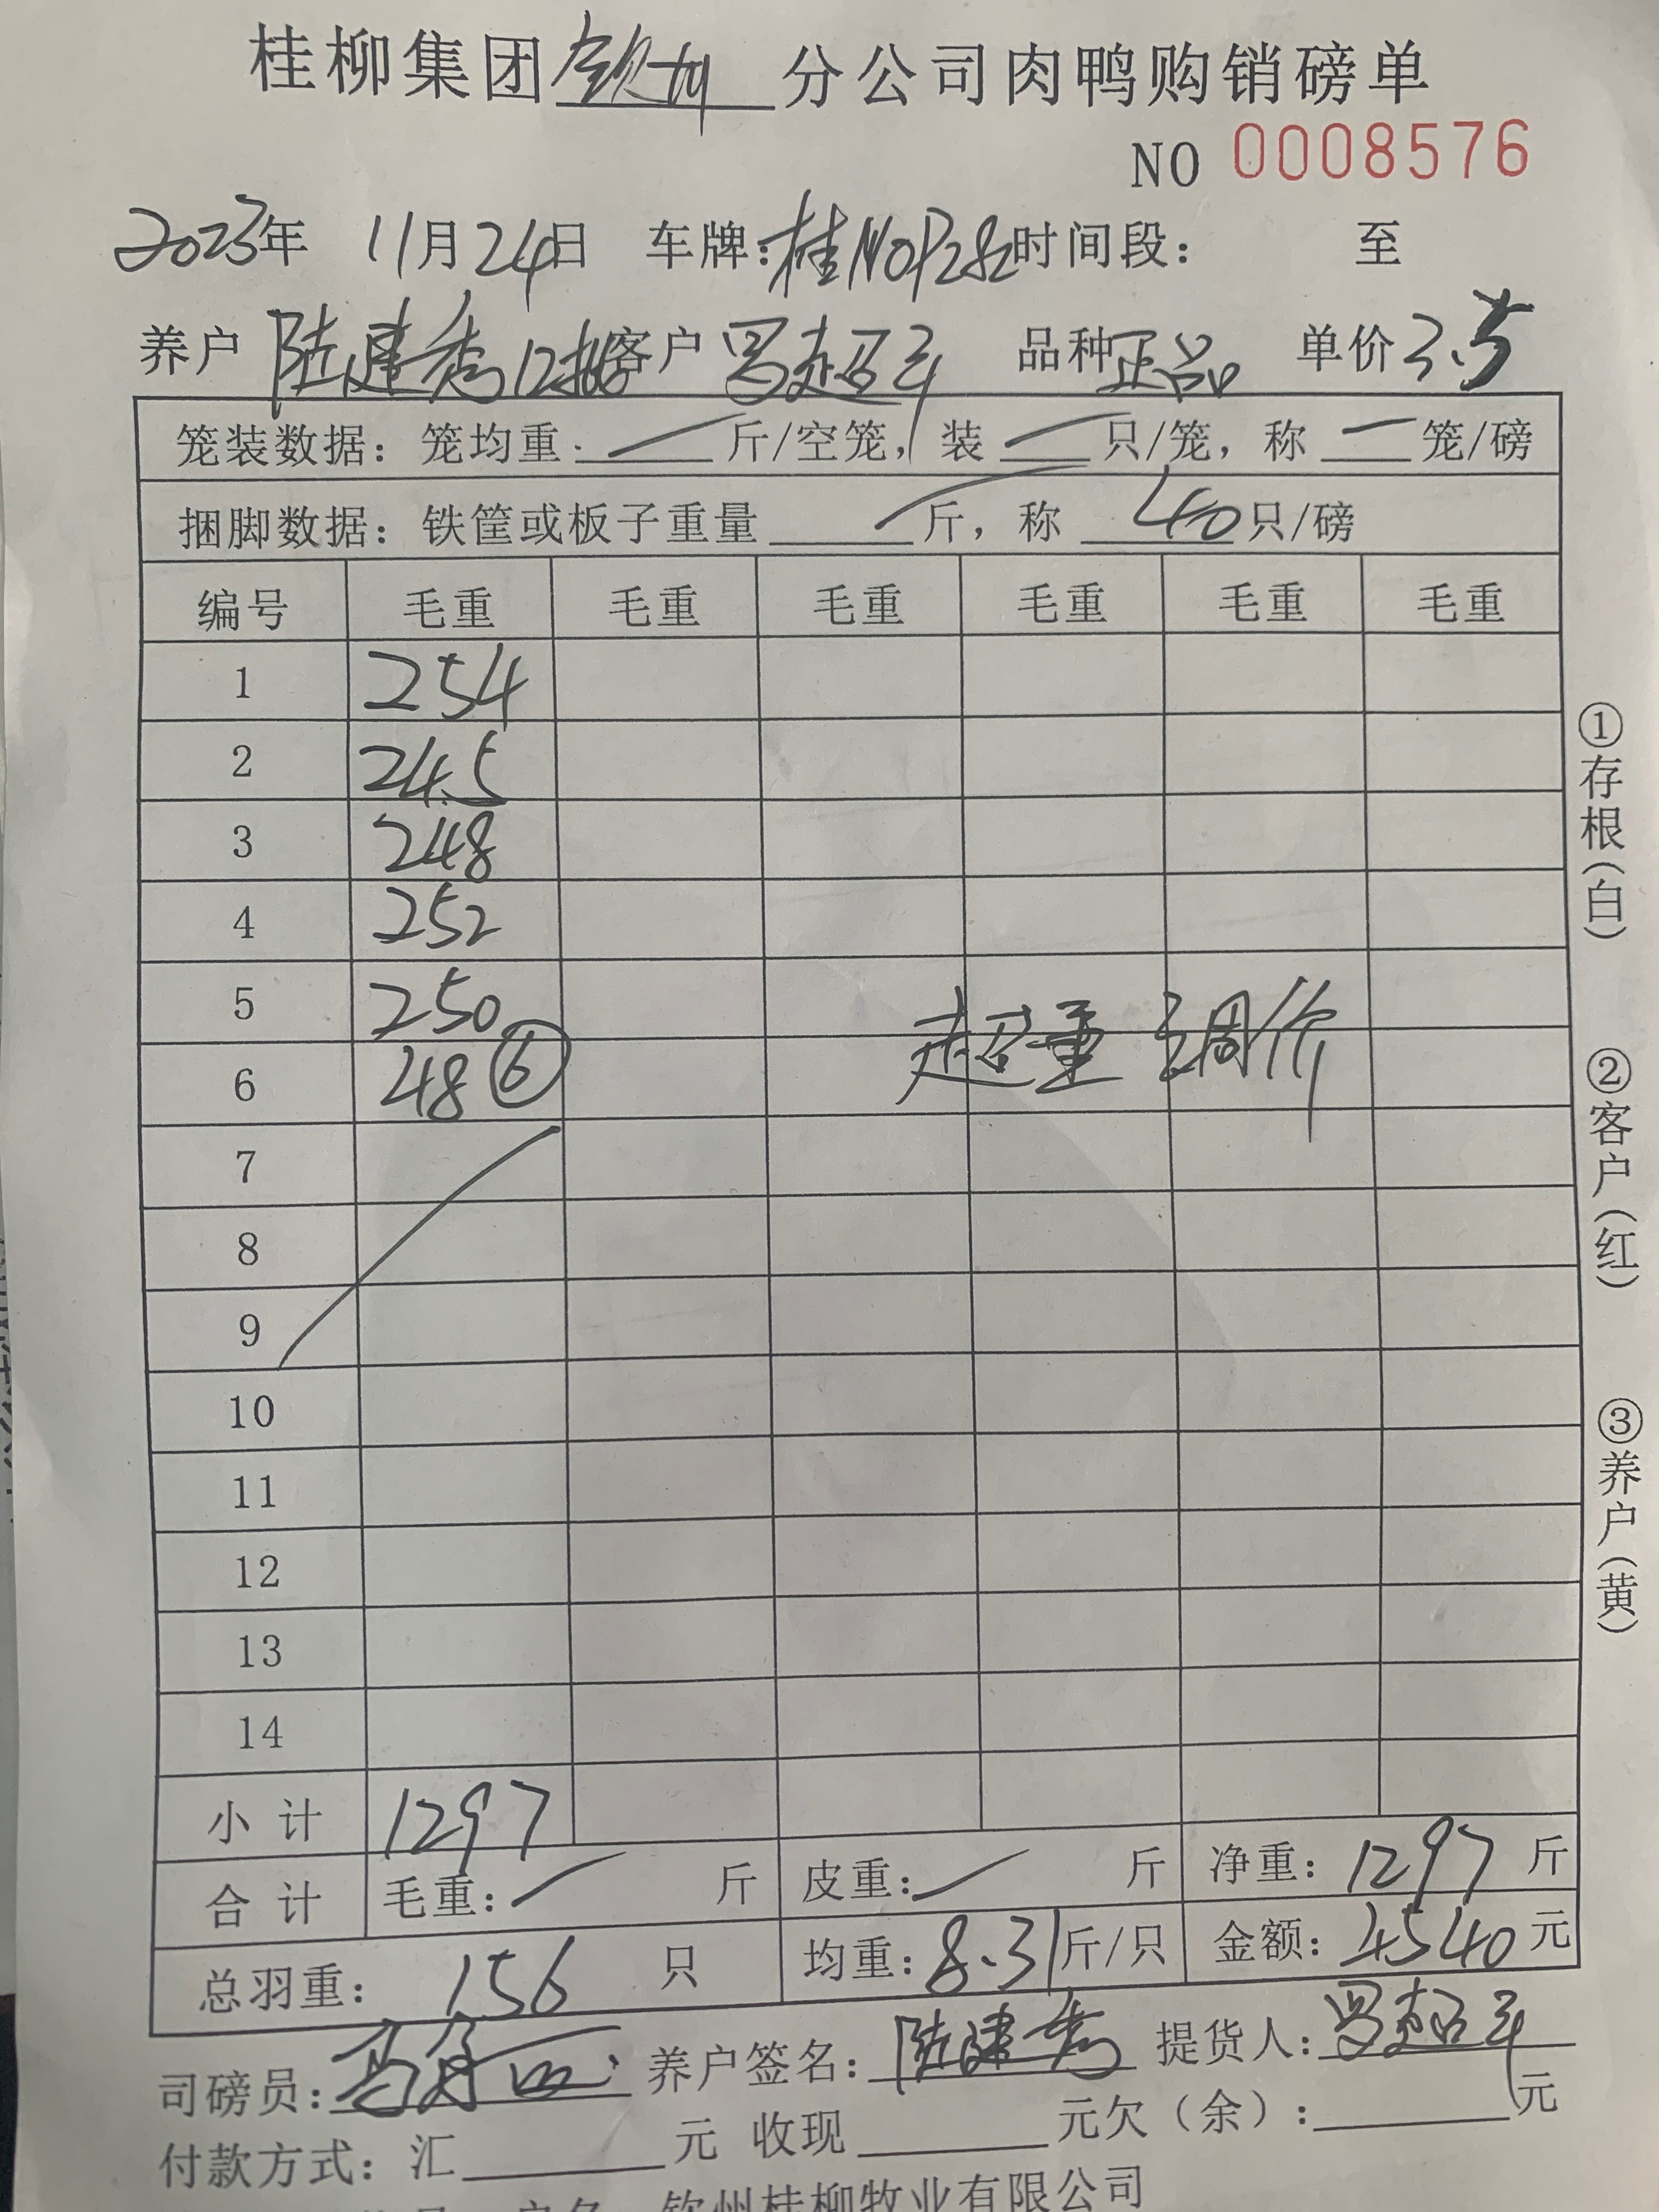 桂柳集团钦州分公司肉鸭购销磅单
NO 0008576
2023年 11月24日 车牌:桂N 时间段: 至
养户 陆建秀12批 客户 罗超云 品种正品 单价3.5
笼装数据: 笼均重 — 斤/空笼, 装 — 只/笼, 称 — 笼/磅
捆脚数据: 铁筐或板子重量 — 斤, 称 40 只/磅
编号 毛重 毛重 毛重 毛重 毛重 毛重
1 254
2 245
3 248
4 252
5 250
6 48 ⑥
超重 调价
7
8
9
10
11
12
13
14
小计 1297
合计 毛重: — 斤 皮重: — 斤 净重: 1297 斤
总羽重: 156 只 均重: 8.31 斤/只 金额: 4540 元
司磅员: 养户签名: 陆建秀 提货人: 罗超云
付款方式: 汇 元 收现 元欠(余): 元
户名 钦州桂柳牧业有限公司
①存根(白)
②客户(红)
③养户(黄)